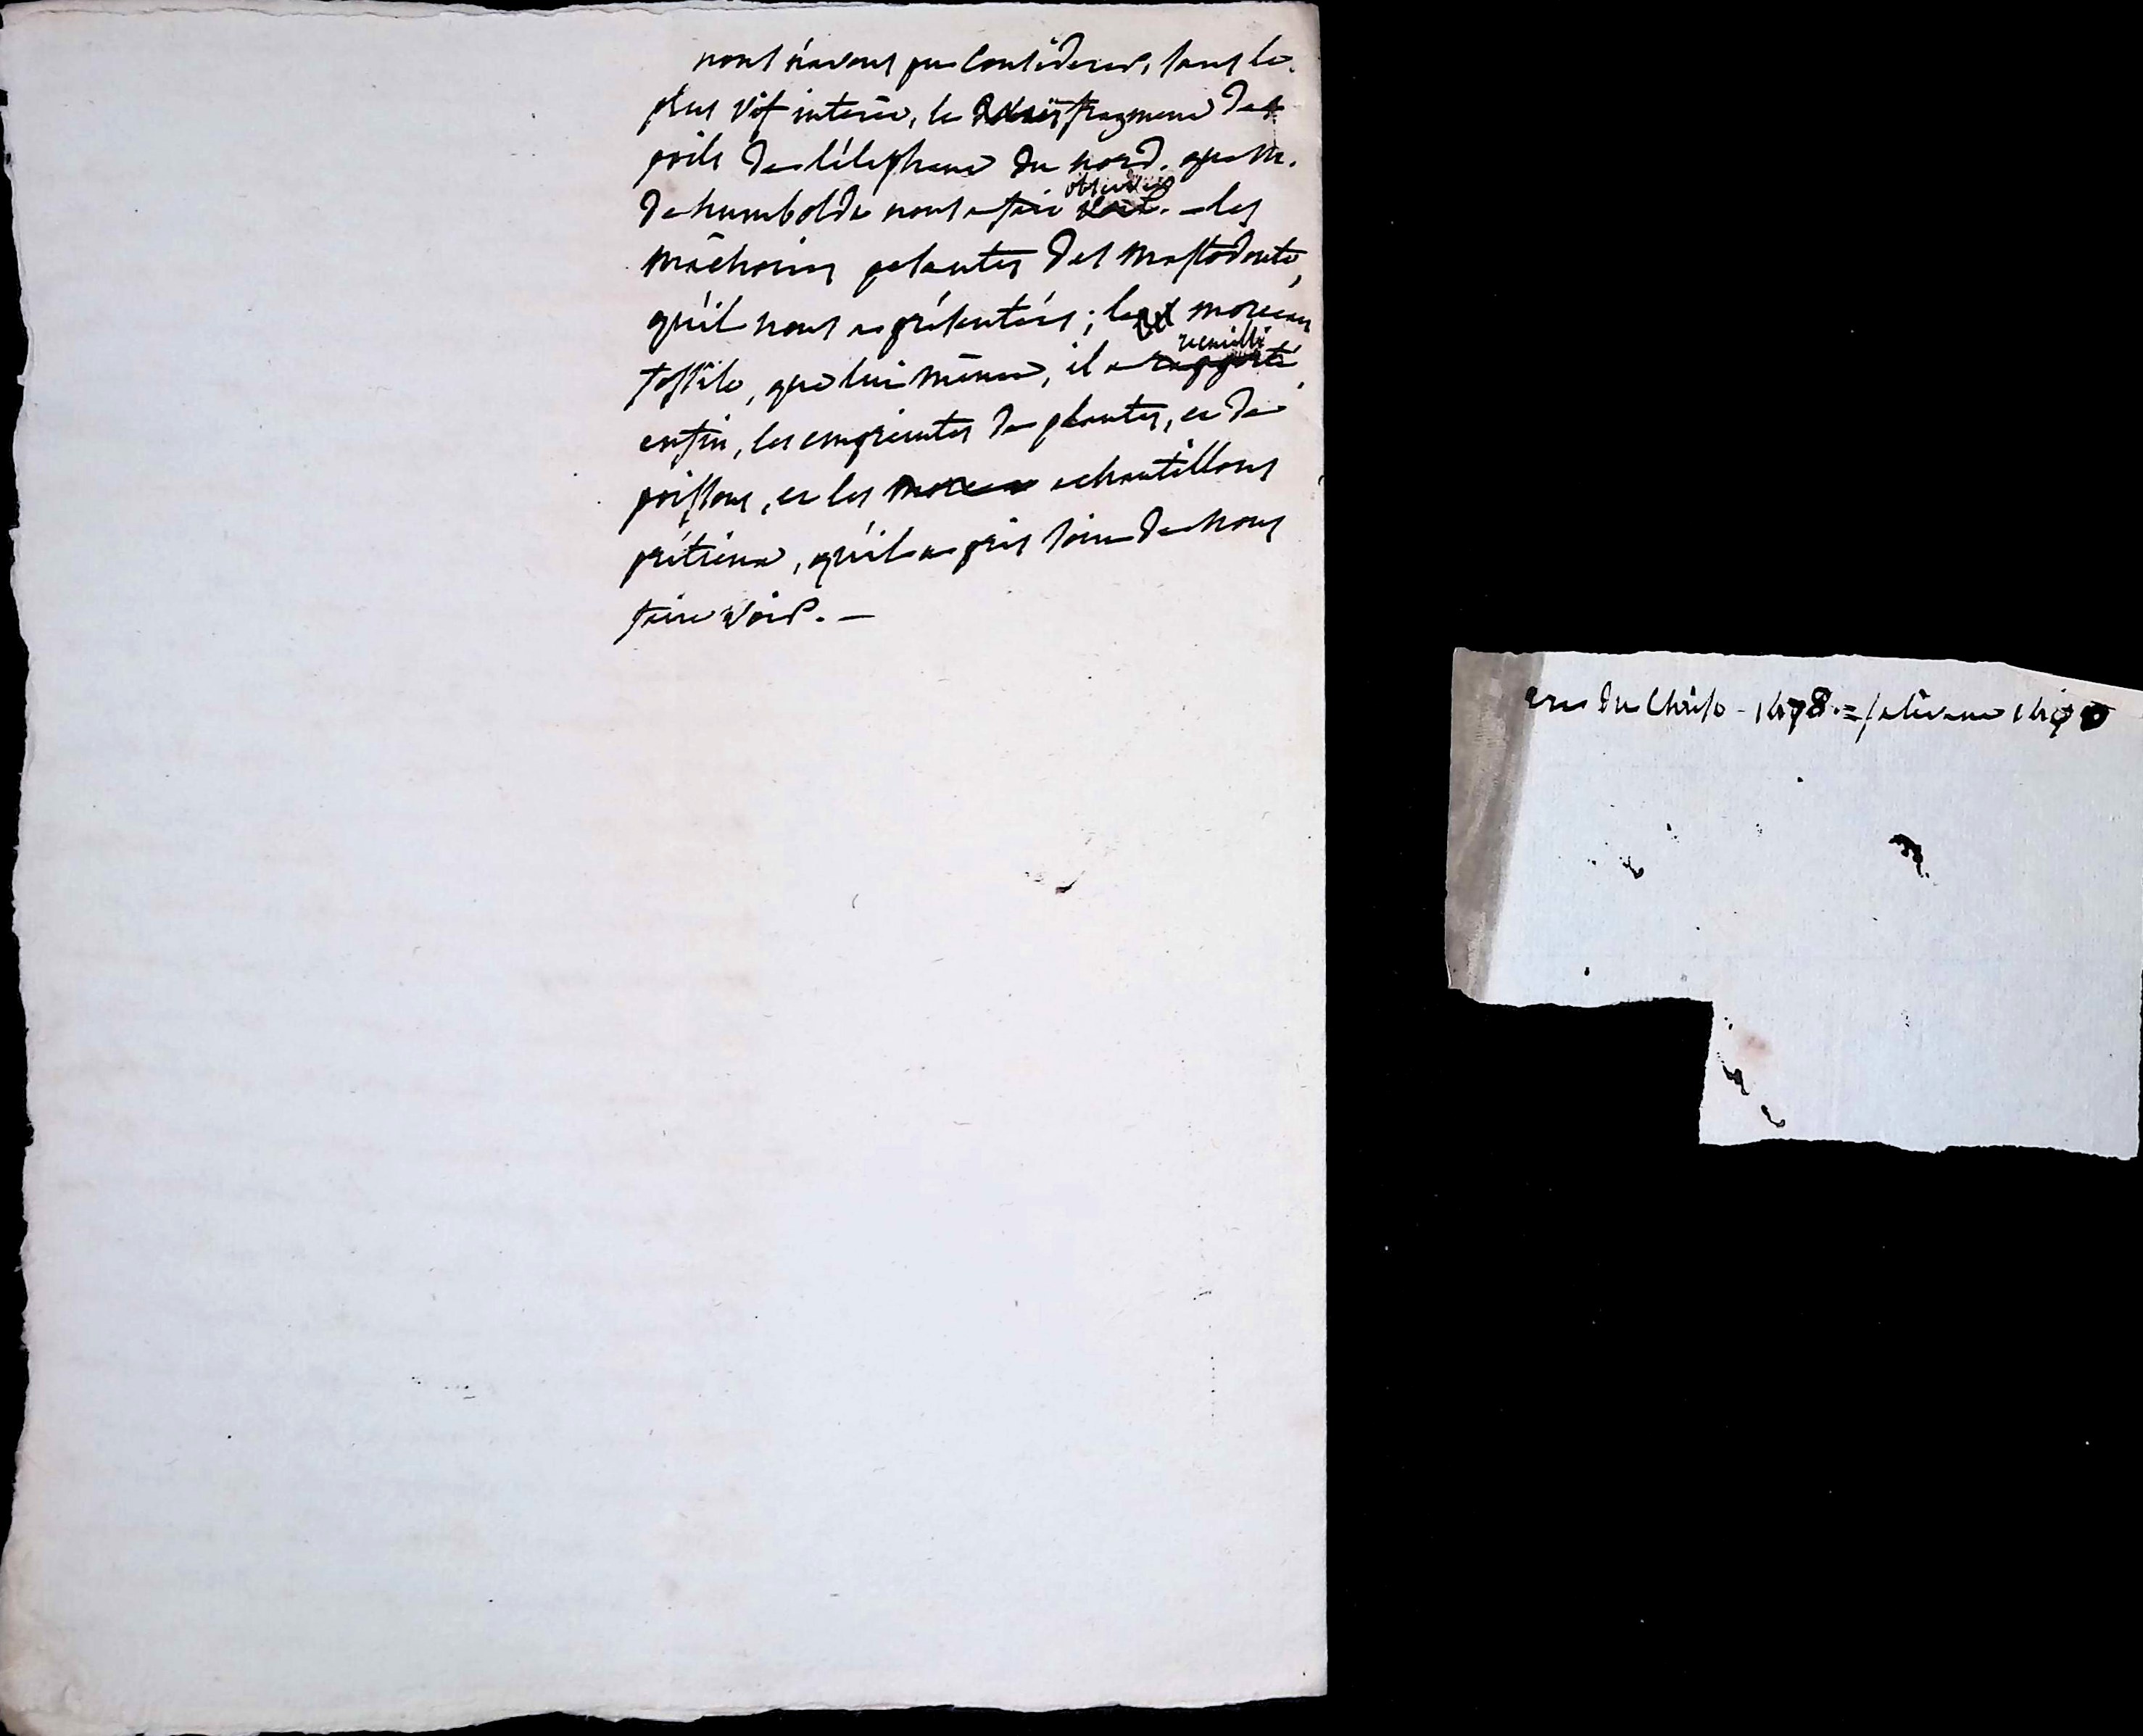 nous n'avons pu considerer, sans le
plus vif interêt, le fragment des
poils de l'élephant du nord, que M.
observer
de humboldt nous a fait voir. – les
mâchoires pesantes des mastodonte,
qu'il nous a présentées; le morceau
recueilli
fossile, que lui même, il a rapporté,
enfin, les empreintes de plantes, et de
poissons, et les morceau echantillons
prétieux, qu'il a pris soin de nous
faire voir. –
ere du Christ - 1478. =